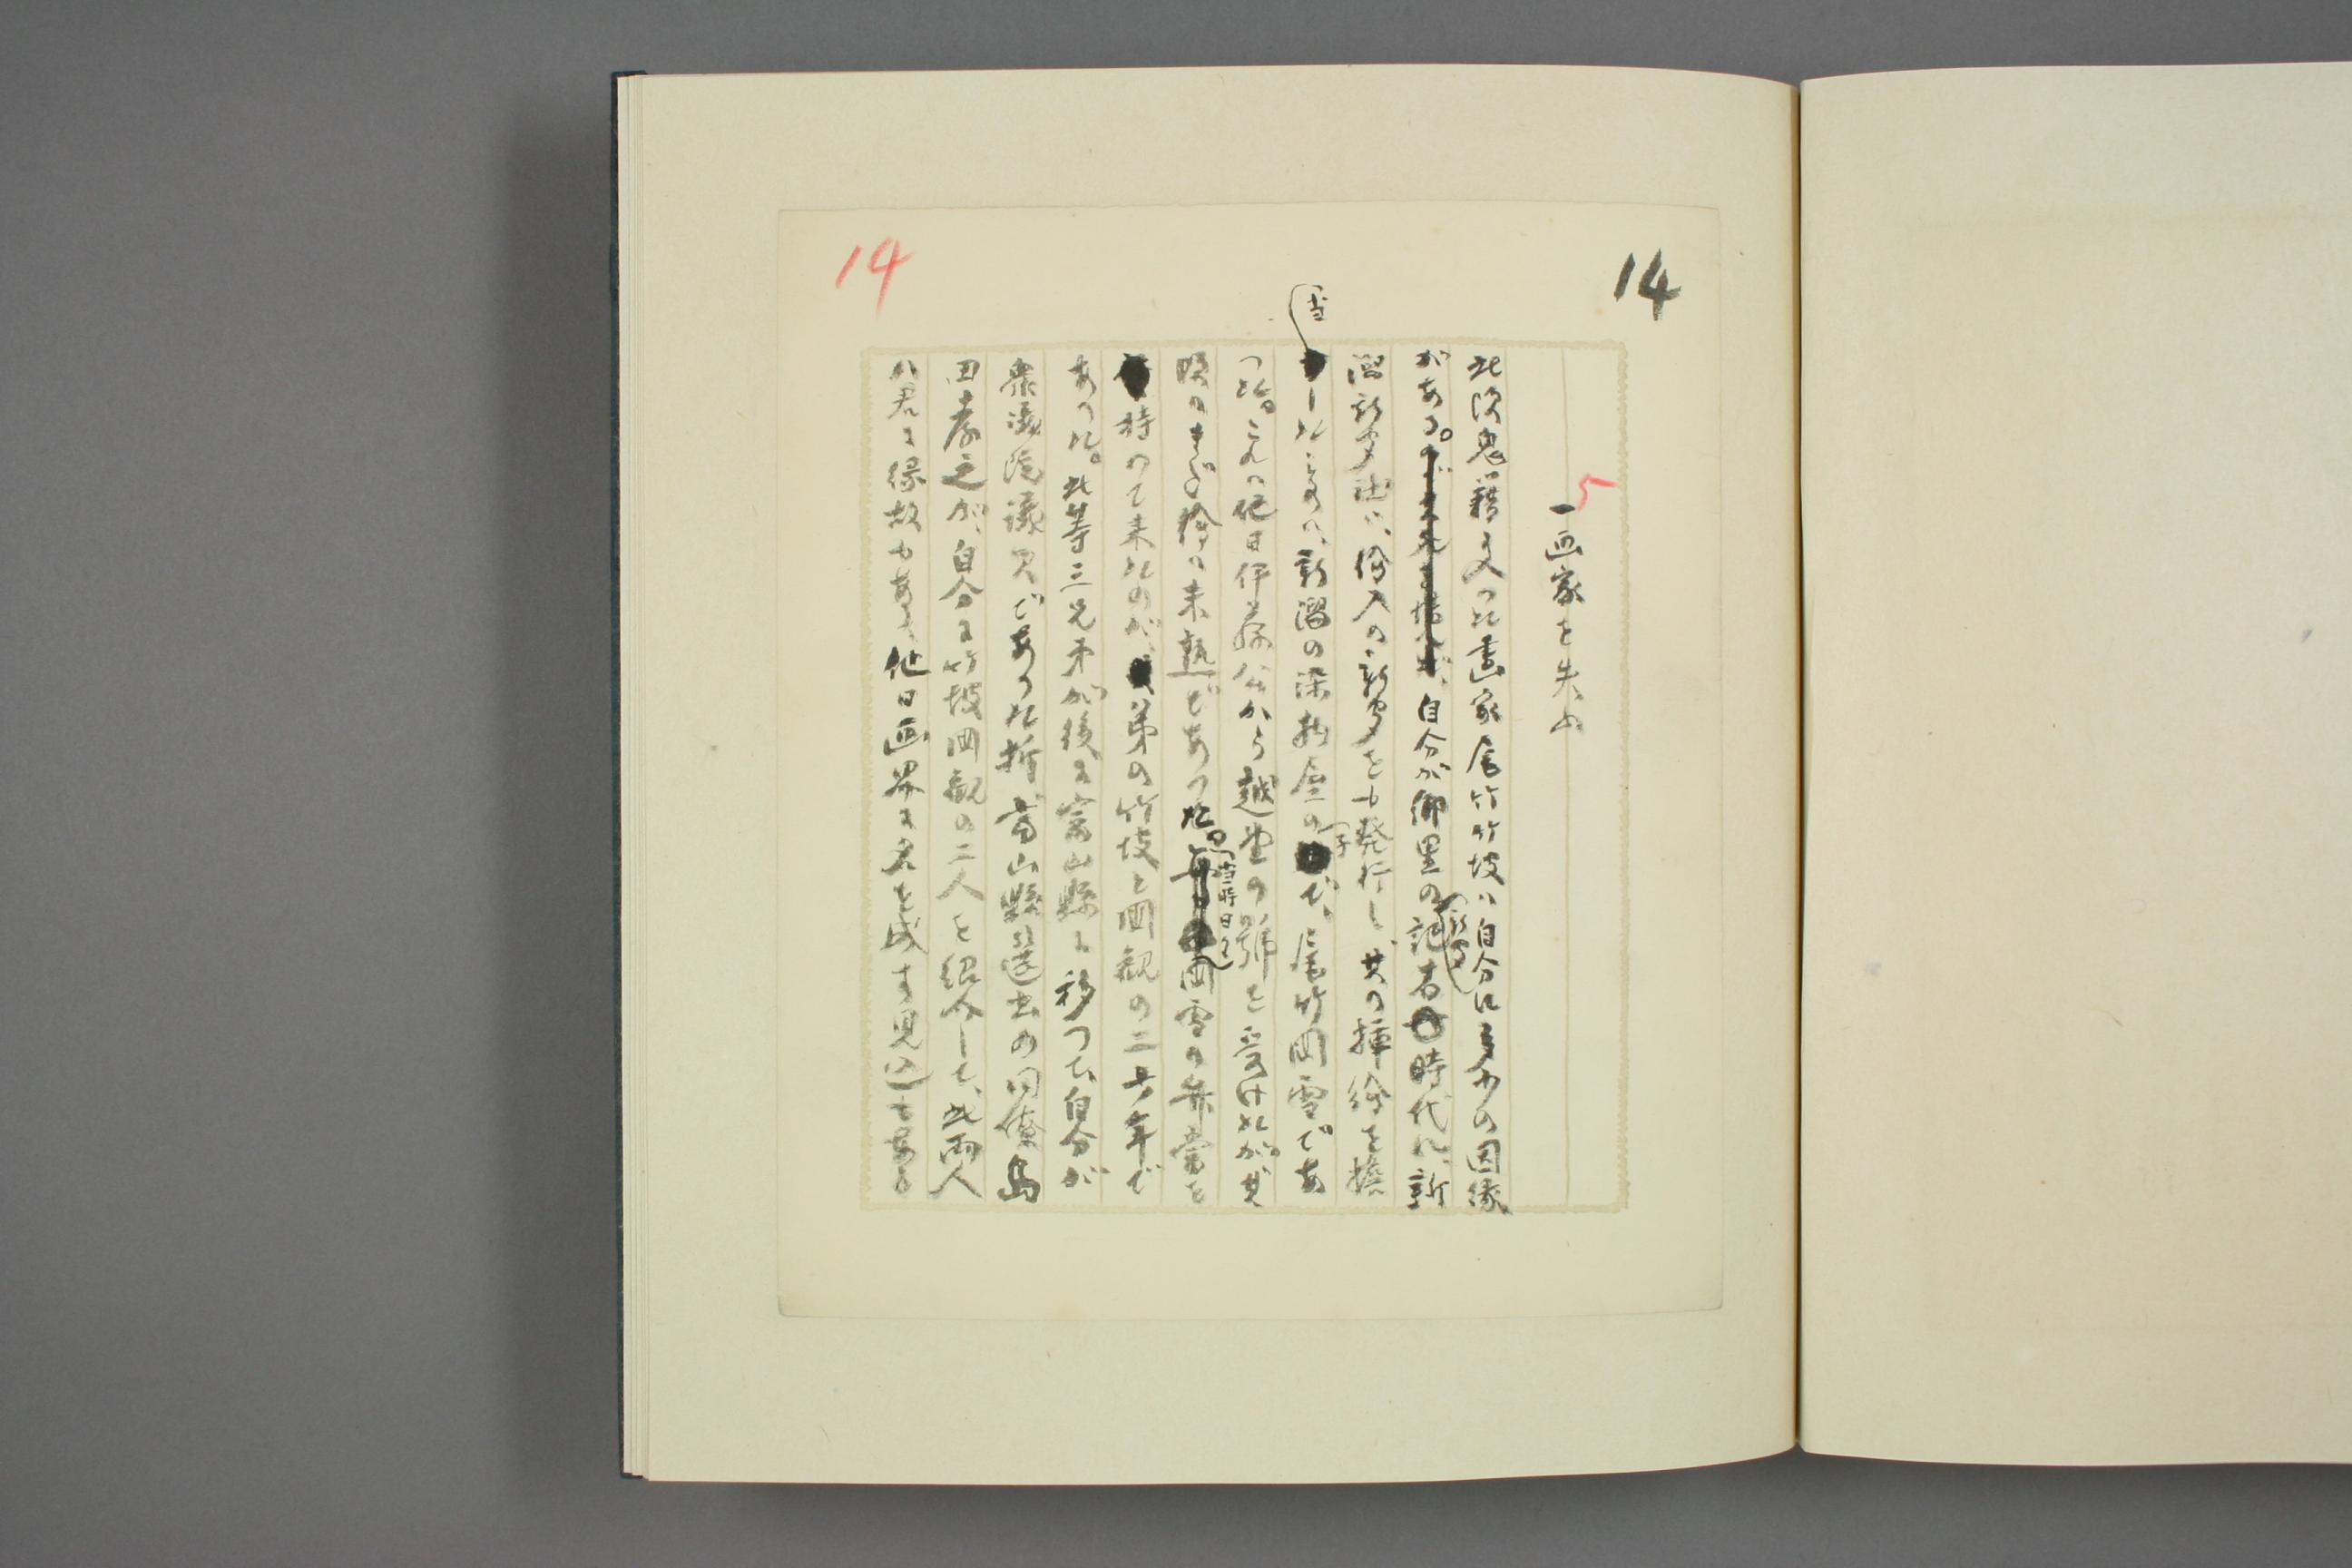 14
14
5
一画家を失ふ
此頃鬼籍に入つた畫家尾竹竹坡は自分に多少の因縁
がある。自分が郷里の新聞記者時代に、新
潟新聞社に、絵入の新聞をも発行し、其の挿絵を擔
当したものは、新潟の染物屋の子で、尾竹国雪であ
つた。これは他日伊藤公から越堂の號を受けたが、其
時のまだ絵は未熟であつた。当時日々国雪の弁當を
持つて来たのが、弟の竹坡と国観の二少年で
あつた。此等三兄弟が後に富山縣に移つて、自分が
衆議院議員であつた折、富山縣選出の同僚島
田孝之が、自分に竹坡国観の二人を紹介して、此両人
は君に縁故もある、他日画界に名を成す見込もある